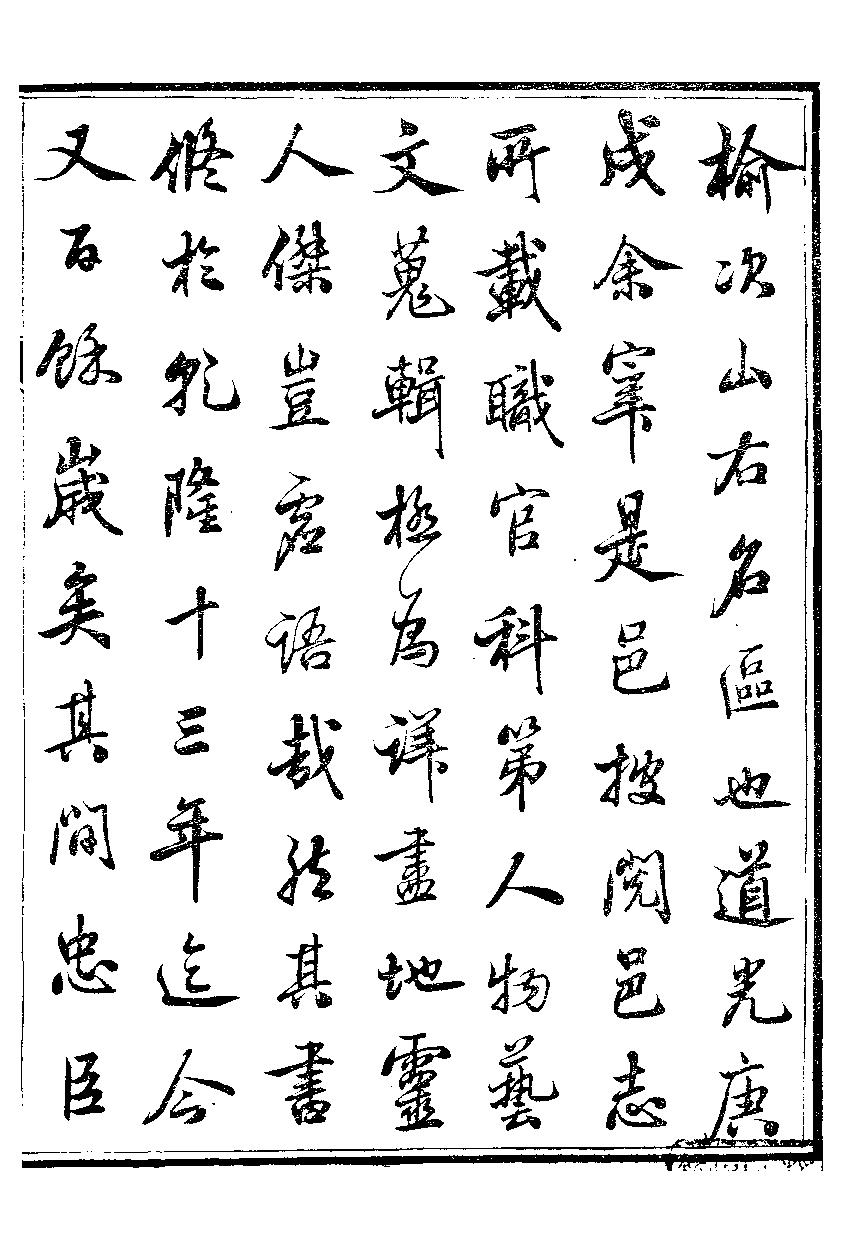 榆次山右名區也道光庚
戌余宰是邑披閱邑志
所載職官科第人物藝
文蒐輯極為詳盡地靈
人傑豈虛語哉然其書
修於乾隆十三年迄今
又百餘歲矣其間忠臣